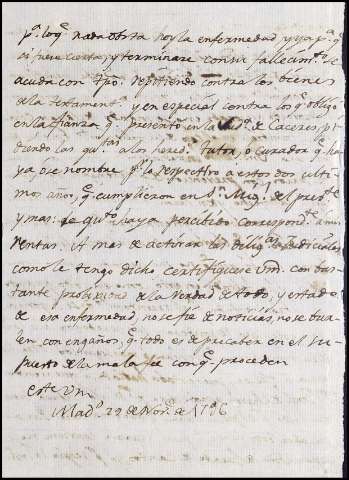 p.ª loq.^e nada obsta hoy la enfermedad y ya p.^r q.^e
si fuere cierta, y terminare con su fallecim.^to se
acuda con tpo. repitiendo contra los bienes
de la testament.ª y en especial contra los q.^e obligó
en la fianza q.^e presentó en la de Caceres, pi
diendo las qu.^tas a los hered.^s tutor, o curador q.^e ha
ya o se nombre p.^r lo respectivo a estos dos ulti
mos años, q.^e cumplieron en S.^n Mig.^l del pres.^te
y mas: de q.^to haya percibido correspond.^te a mis
rentas. A mas de actuar las dilig.^s judiciales
como le tengo dicho certifiquese Vm. con bas
tante proligidad de la verdad de todo, y estado
de esa enfermedad, no se fie de noticias, no se bur
len con engaños, q.^e todo es de precaber en el su
puesto de la mala fee con q.^e proceden
este Vm
Mad.^d 29 de Nov.^e de 1796